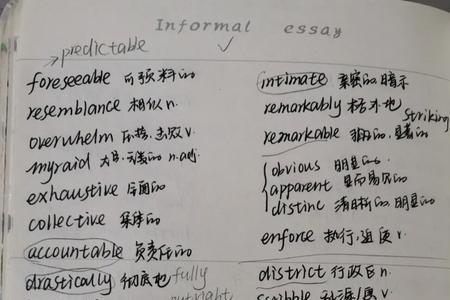 Informal essay
predictable
foreseeable 可预料的
resemblance 相似 n.
overwhelm 压垮, 击败 v.
myraid 大量, 无数的 n. adj.
exhaustive 全面的
collective 集体的
accountable 负责任的
drastically 彻底地 fully
outright,
intimate 亲密的, 暗示
remarkably 格外地
striking
remarkable 非凡的, 显著的
obvious 明显的
apparent 显而易见的
distinc 清晰的, 明显的
enforce 执行, 强迫 v.
district 行政区 n.
scribble